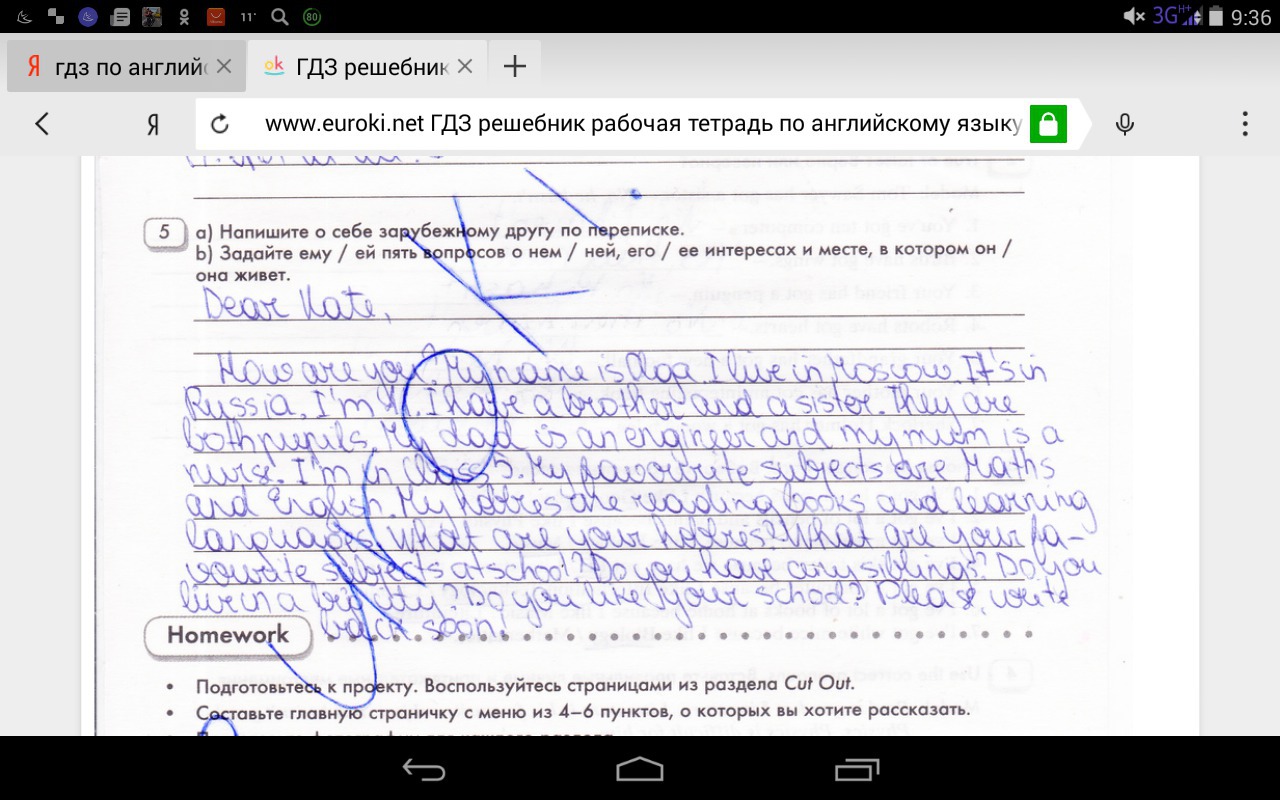 11°
80
3G H+
9:36
Я гдз по английс
ok ГДЗ решебник
Я www.euroki.net ГДЗ решебник рабочая тетрадь по английскому языку
5 a) Напишите о себе зарубежному другу по переписке.
b) Задайте ему / ей пять вопросов о нем / ней, его / ее интересах и месте, в котором он /
она живет.
Dear Kate,
How are you? My name is Olga. I live in Moscow. It's in
Russia. I'm 11. I have a brother and a sister. They are
both pupils. My dad is an engineer and my mum is a
nurse. I'm in Class 5. My favourite subjects are Maths
and English. My hobbies are reading books and learning
languages. What are your hobbies? What are your fa-
vourite subjects at school? Do you have any siblings? Do you
live in a big city? Do you like your school? Please, write
back soon!
Homework
• Подготовьтесь к проекту. Воспользуйтесь страницами из раздела Cut Out.
• Составьте главную страничку с меню из 4–6 пунктов, о которых вы хотите рассказать.